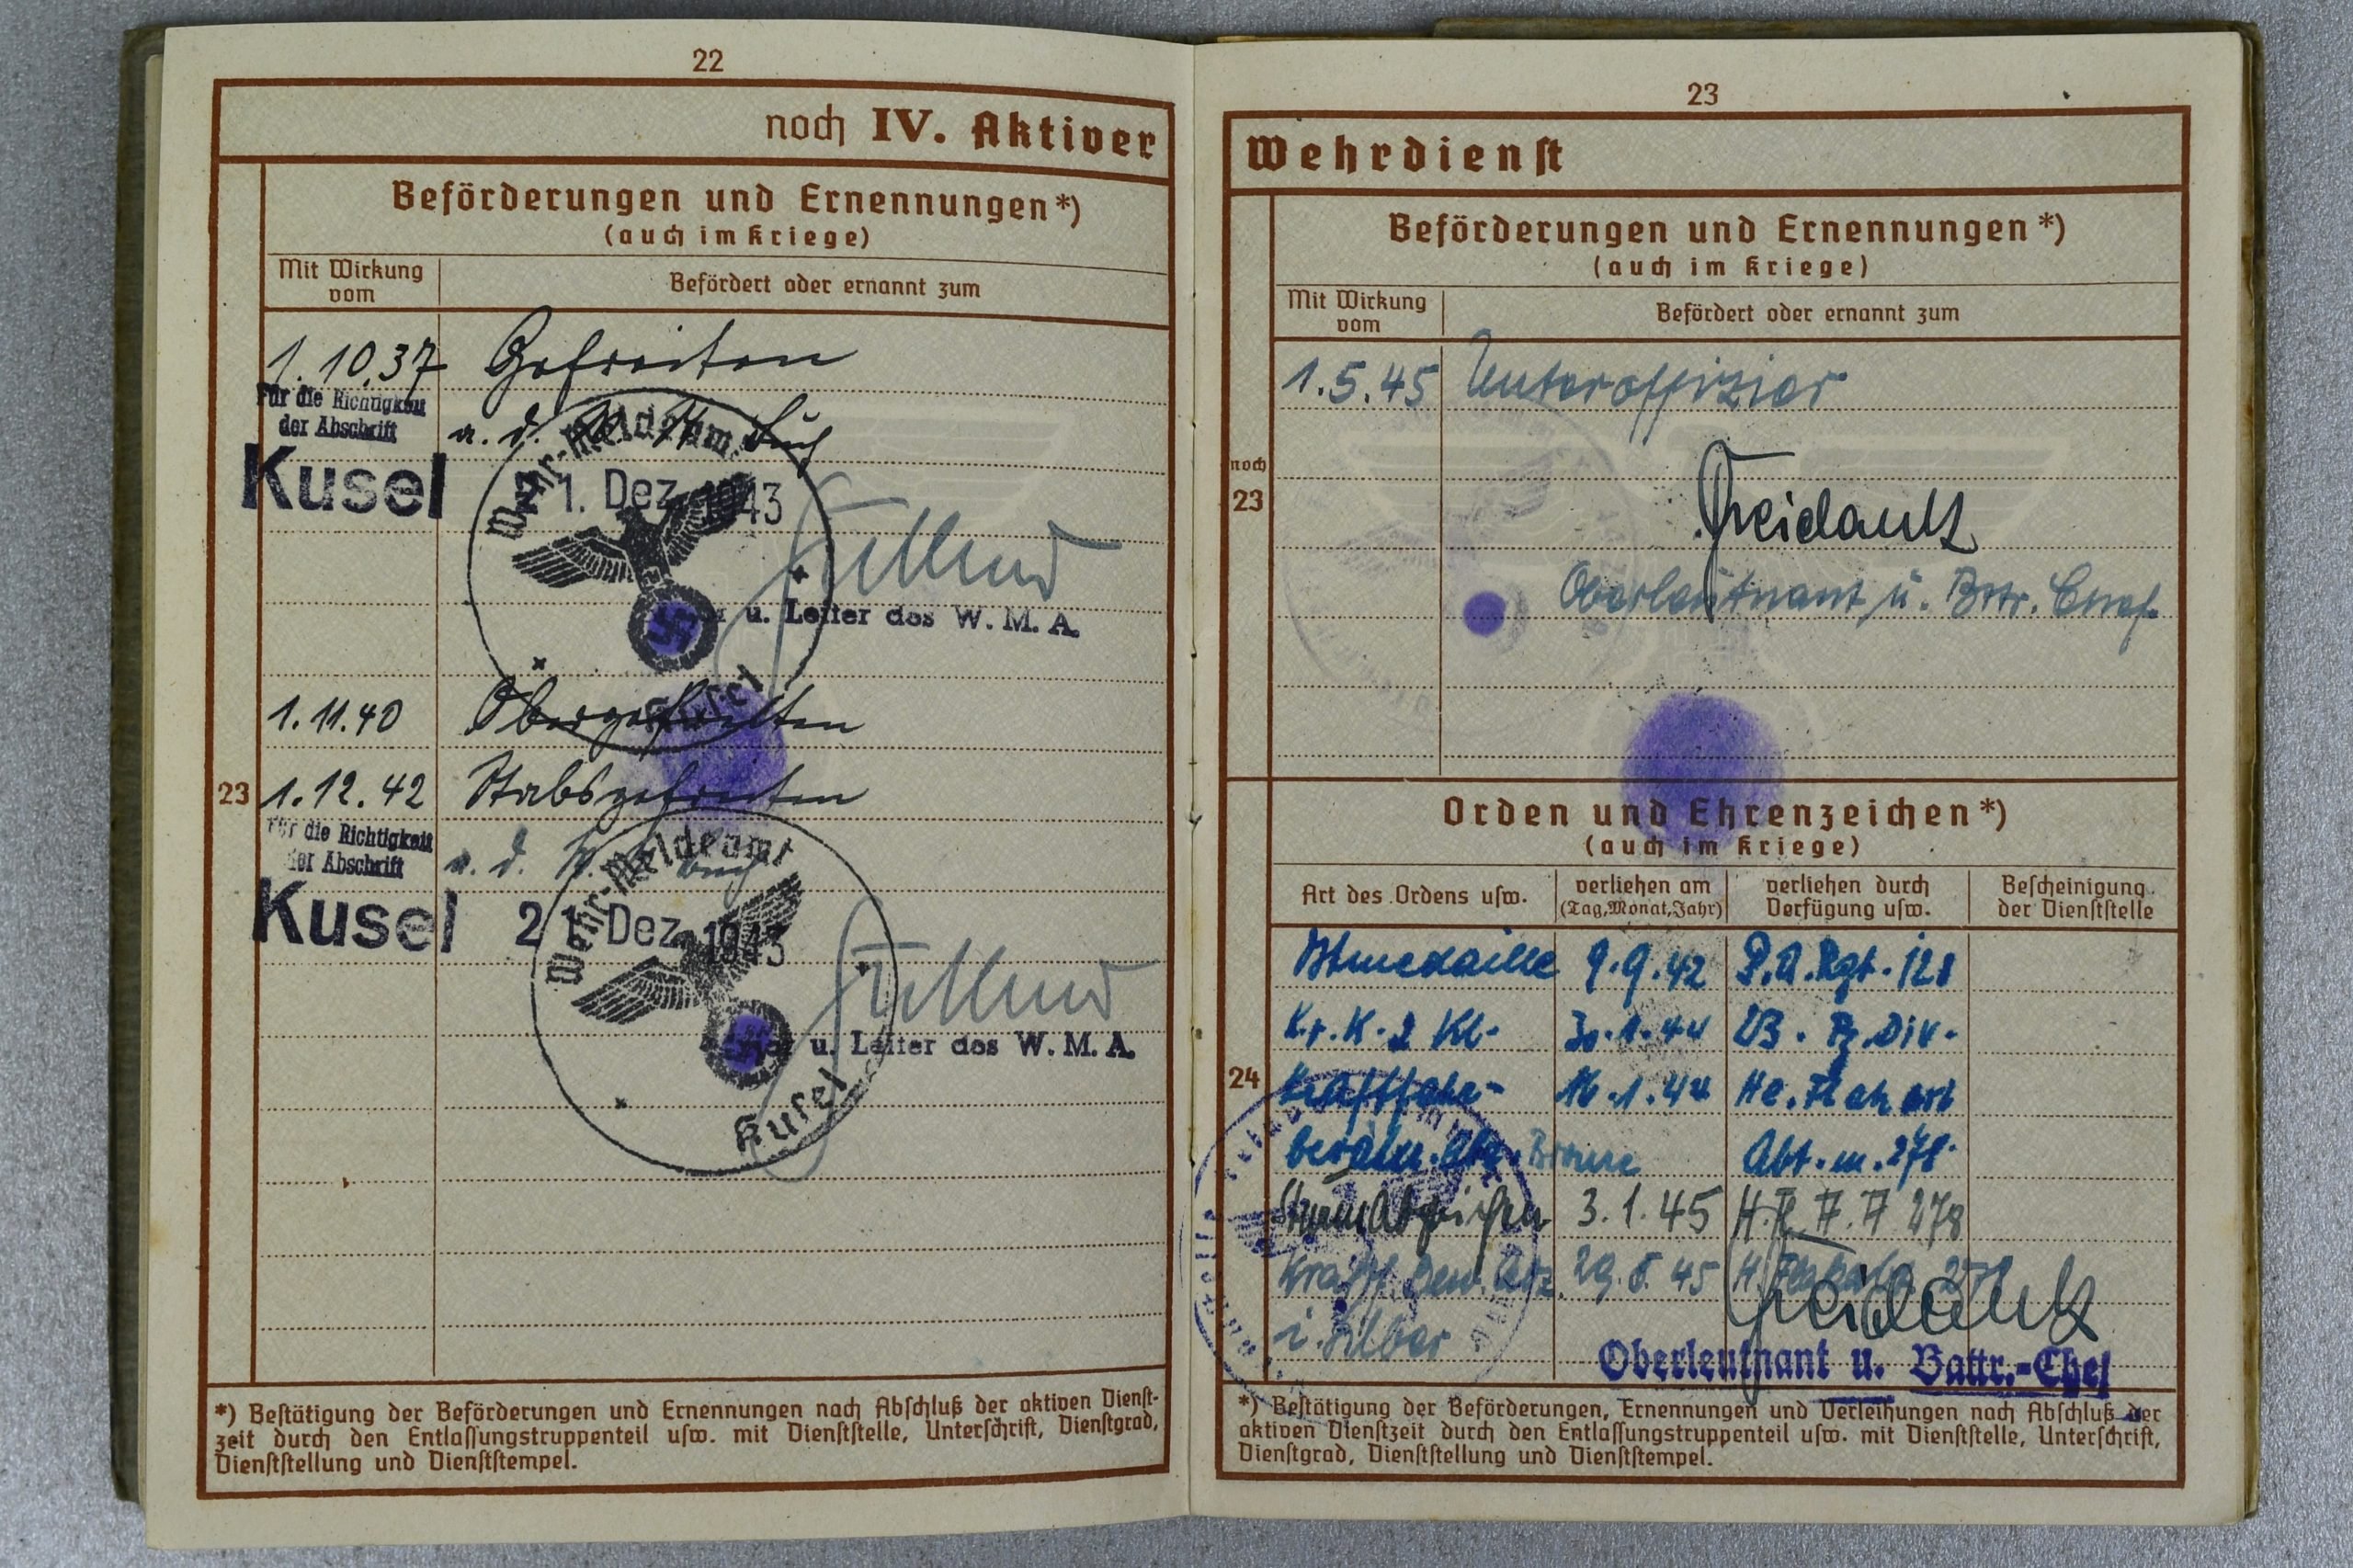 22
noch IV. Aktiver
Beförderungen und Ernennungen*)
(auch im Kriege)
Mit Wirkung vom
Befördert oder ernannt zum
1.10.37 Gefreiten
Für die Richtigkeit
der Abschrift
a. d.
Wehr-Meldeamt
Kusel
21. Dez. 1943
u. Leiter des W. M. A.
Kusel
1.11.40 Obergefreiten
23 1.12.42 Stabsgefreiten
Für die Richtigkeit
der Abschrift
a. d. W. Buch
Wehr-Meldeamt
Kusel
21. Dez. 1943
u. Leiter des W. M. A.
Kusel
*) Bestätigung der Beförderungen und Ernennungen nach Abschluß der aktiven Dienst-
zeit durch den Entlassungstruppenteil usw. mit Dienststelle, Unterschrift, Dienstgrad,
Dienststellung und Dienststempel.
23
Wehrdienst
Beförderungen und Ernennungen*)
(auch im Kriege)
Mit Wirkung vom
Befördert oder ernannt zum
1.5.45 Unteroffizier
noch
23
Oberleutnant u. Bttr. Chef
Orden und Ehrenzeichen*)
(auch im Kriege)
Art des Ordens usw.
verliehen am
(Tag, Monat, Jahr)
verliehen durch
Verfügung usw.
Bescheinigung
der Dienststelle
Ostmedaille 9.9.42 P.A.Rgt. 128
K.V.K. 2 Kl. 30.1.44 23. Pz. Div.
24 Kraftfahr- 16.1.44 He. Flak Art
bewähr. Abz. Bronze Abt. m. 278
Sturmabzeichen 3.1.45 H.F.A.A 278
Kraftf. Bew. Abz. 29. 5. 45
i. Silber
Oberleutnant u. Battr.-Chef
*) Bestätigung der Beförderungen, Ernennungen und Verleihungen nach Abschluß der
aktiven Dienstzeit durch den Entlassungstruppenteil usw. mit Dienststelle, Unterschrift,
Dienstgrad, Dienststellung und Dienststempel.